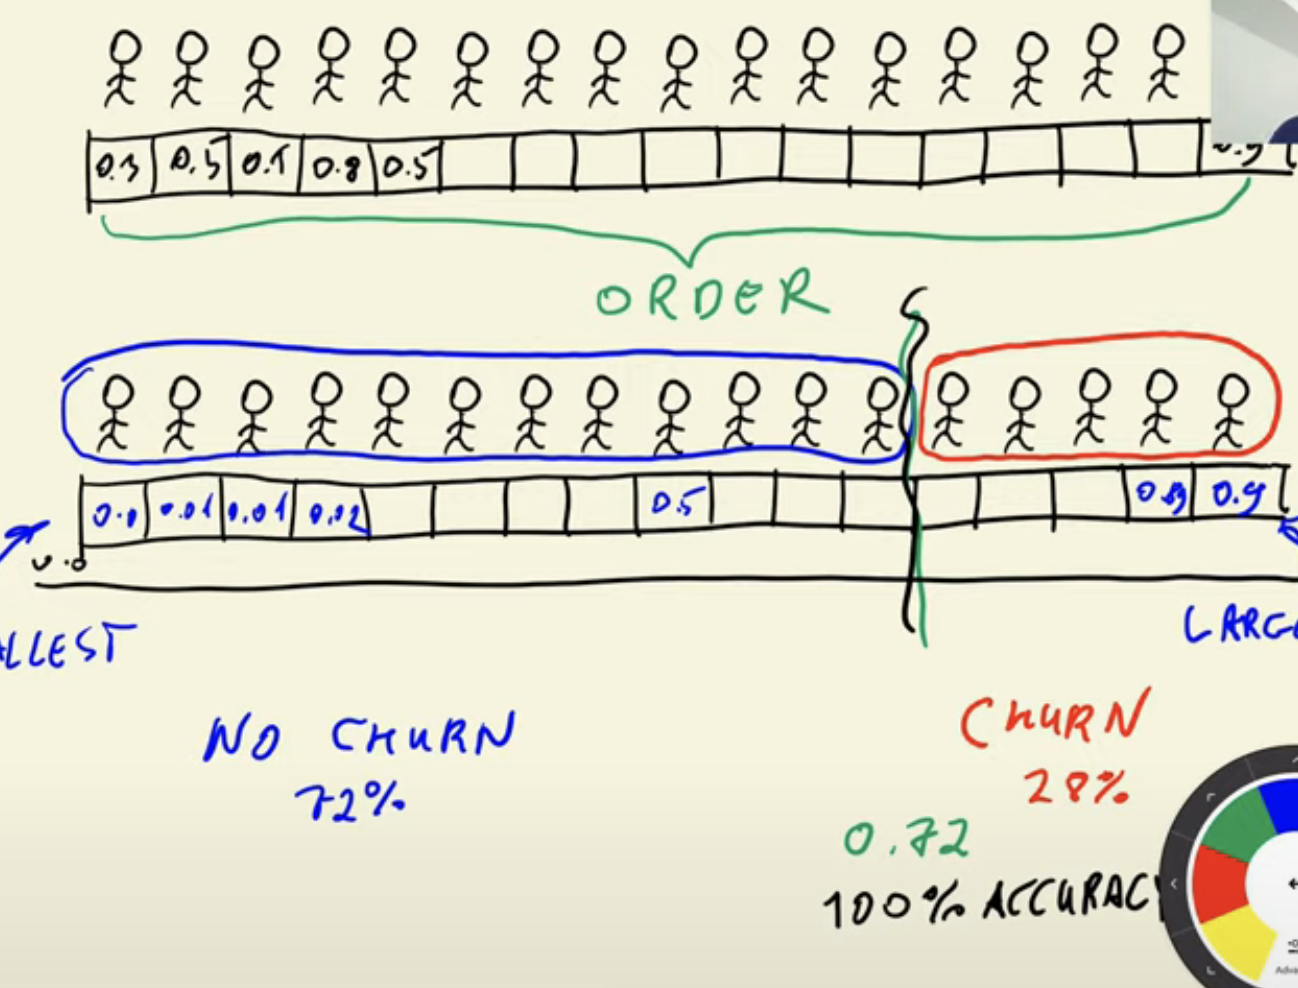 0.3 0.5 0.1 0.8 0.5 0.9
ORDER
0.0 0.01 0.01 0.02 0.5 0.89 0.9
0.0
LLEST
LARG
NO CHURN
72%
CHURN
28%
0.72
100% ACCURACY
Adva